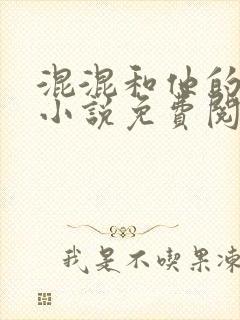 混混和他的
小說免費閱
我是不喫果凍